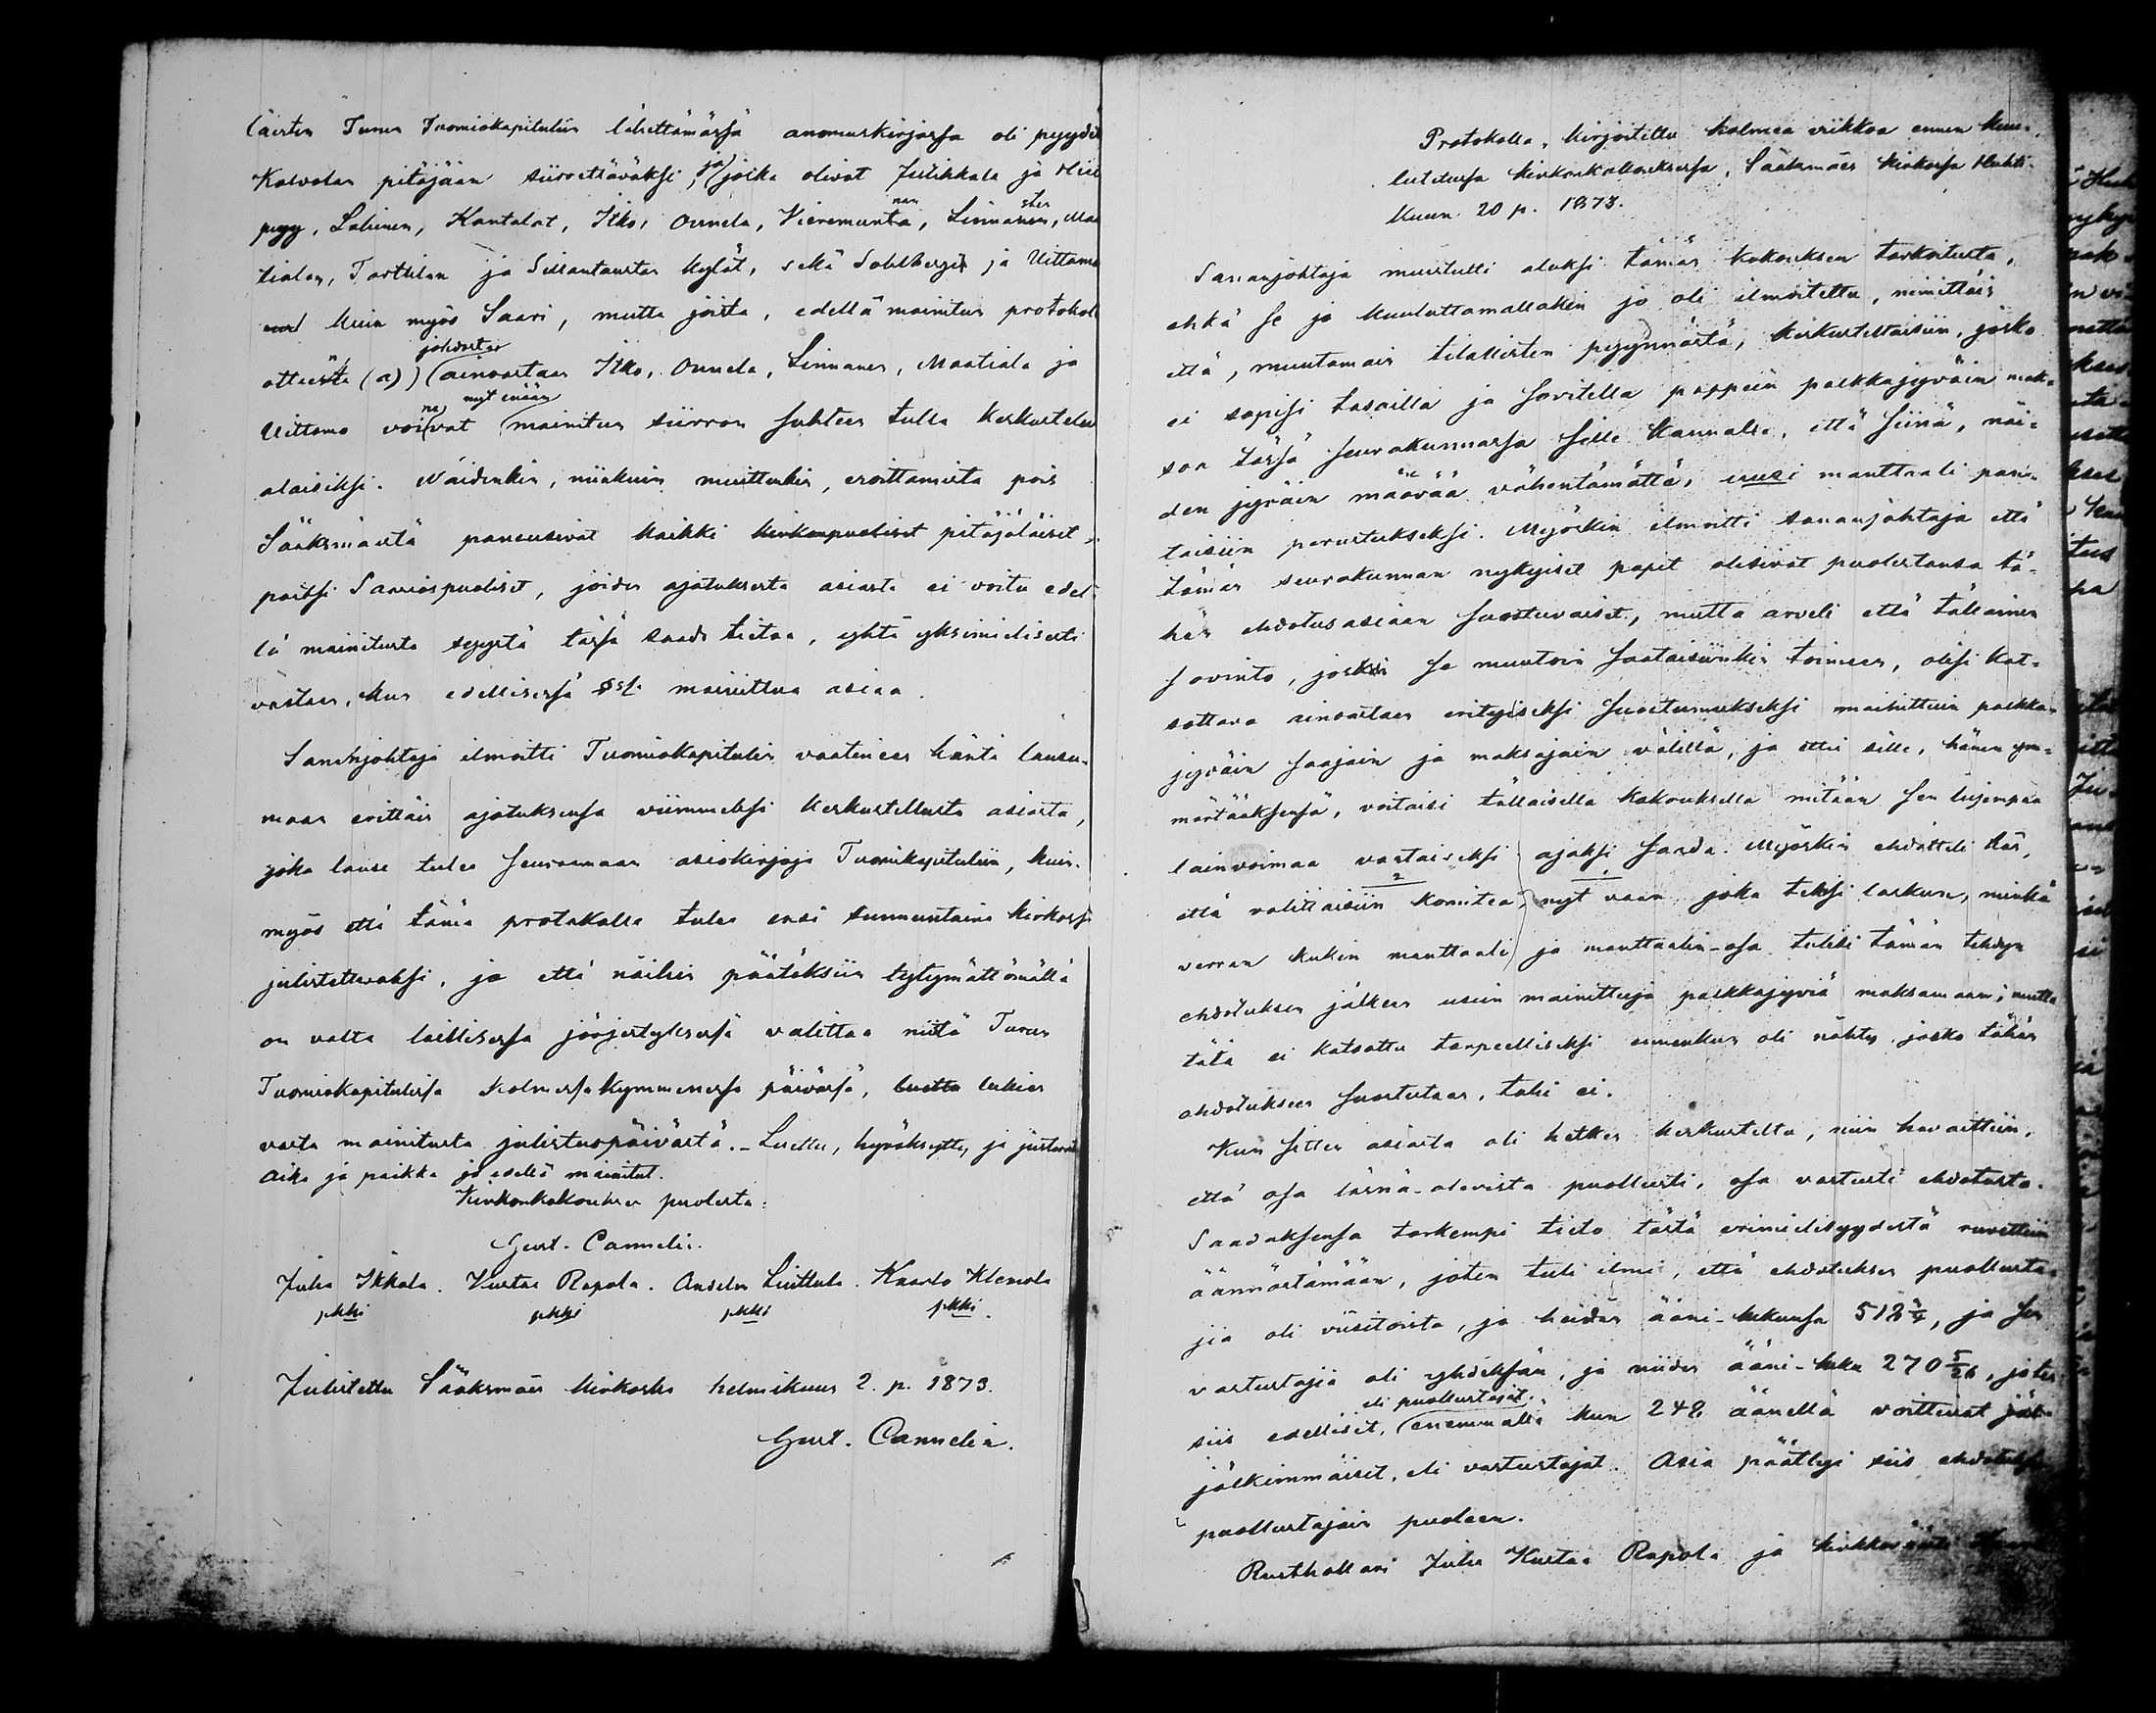 läisten Turun Tuomiokapituliin lähettämässä anomuskirjassa oli pyydet
Kalvolan pitäjään siirrettäväksi, ja joika olivat Jutikkala ja
pyy, Lahinen, Kantalat, Itko, Onnela, Vieremunta, Linnanen,
tialan, Tarttilan ja Sillantaustan kylät, sekä Sohlbergit ja Uittamo
kuin myös Saari, mutta joista, edellä mainitun protokoll
johdosta
otteesta (a)) ainoastaan Itko, Onnela, Linnanen, Maatiala ja
nyt enään
Uittamo voivat mainitun siirron suhteen tulla keskustelun
alaisiksi. Näidenkin, niinkuin muittenkin, eroittamista pois
Sääksmäestä panousivat kaikki kirkonpuoliset pitäjäläiset,
paitsi Saarispuoliset, joiden ajatuksesta asiasta ei voitu edel
lä mainitusta syystä tässä saada tietoa, yhtä yksimielisesti
vastaan, kun edellisessä §ssä mainittua asiaa.
Sananjohtaja ilmoitti Tuomiokapitulin vaatineen häntä lausu-
maan erittäin ajatuksensa viimmeksi keskustellusta asiasta,
joka lause tulee seuraamaan asiakirjoja Tuomikapituliin, kuin
myös että tämä protokolla tulee ensi sunnuntaina kirkossa
julistettavaksi, ja että näihin päätöksiin tytymättömällä
on valta laillisessa järjestyksessä valittaa niitä Turun
Tuomiokapitulissa kolmessakymmenessä päivässä, luettu lukien
vasta mainitusta julistuspäivästä. – Luettu, hyväksytty, ja
Aika ja paikka jo edellä mainitut.
Kirkonkokouksen puolesta:
Gust. Cannelin.
Juha Ikkala. Kustaa Rapola. Anselm Liuttula. Kaarlo Klemola
pkki pkki pkki pkki.
Julistettu Sääksmäen kirkossa helmikuun 2. p. 1873.
Gust. Cannelin.
Protokolla, kirjoitettu kolmea viikkoa ennen kuu-
lutetussa kirkonkokouksessa, Sääksmäen kirkossa Huhti-
kuun 20 p. 1873.
Sananjohtaja muistutti aluksi tämän kokouksen tarkoitusta,
ehkä se jo kuuluttamallakin jo oli ilmoitettu, nimittäin
että, muutamain tilallisten pyynnöstä, keskusteltaisiin, josko
ei sopisi tasailla ja sovitella pappein palkkajyväin mak-
son tässä seurakunnassa sille kannalle, että siinä, näi-
den jyväin määrää vähentämättä, uusi manttaali pan-
taisiin perustukseksi. Myöskin ilmoitti sananjohtaja että
tämän seurakunnan nykyiset papit olisivat puolestansa tä-
hän ehdotusasiaan suostuvaiset, mutta arveli että tällainen
sovinto, joskin se muutoin saataisiinkin toimeen, olisi kat-
sottava ainoastaan erityiseksi suostumukseksi mainittuin palkka-
jyväin saajain ja maksajain välillä, ja ettei sille, hänen ym-
märtääksensä, voitaisi tällaisella kokouksella mitään sen lujempaa
lainvoimaa vastaiseksi ajaksi saada. Myöskin ehdotteli hän,
että valittaisiin komitea, nyt vaan joka tekisi laskun, minkä
verran kukin manttaali ja manttaalin-osa tulisi tämän tehdyn
ehdotuksen jälkeen usein mainittuja palkkajyviä maksamaan; mutta
tätä ei katsottu tarpeelliseksi ennenkun oli nähty josko tähän
ehdotukseen suostutaan, tahi ei.
Kun sitten asiasta oli hetken keskusteltu, niin havaittiin,
että osa läsnä-olevista puollusti, osa vastusti ehdotusta.
Saadaksensa tarkempi tieto tästä erimielisyydestä ruvettiin
äännöstämään, joten tuli ilmi, että ehdotuksen puollusta-
jia oli viisitoista, ja heidän ääni-lukunsa 518 3/4, ja sen
vastustajia oli yhdeksän, ja niiden ääni-luku 270 5/26, joten
eli puollustajat
siis edelliset, enemmällä kun 248 äänellä voittivat
jälkimmäiset, eli vastustajat. Asia päättyi siis ehdotuksen
puollustajain puoleen.
Rusthollari Juha Kustaa Rapola ja kirkkoväärti